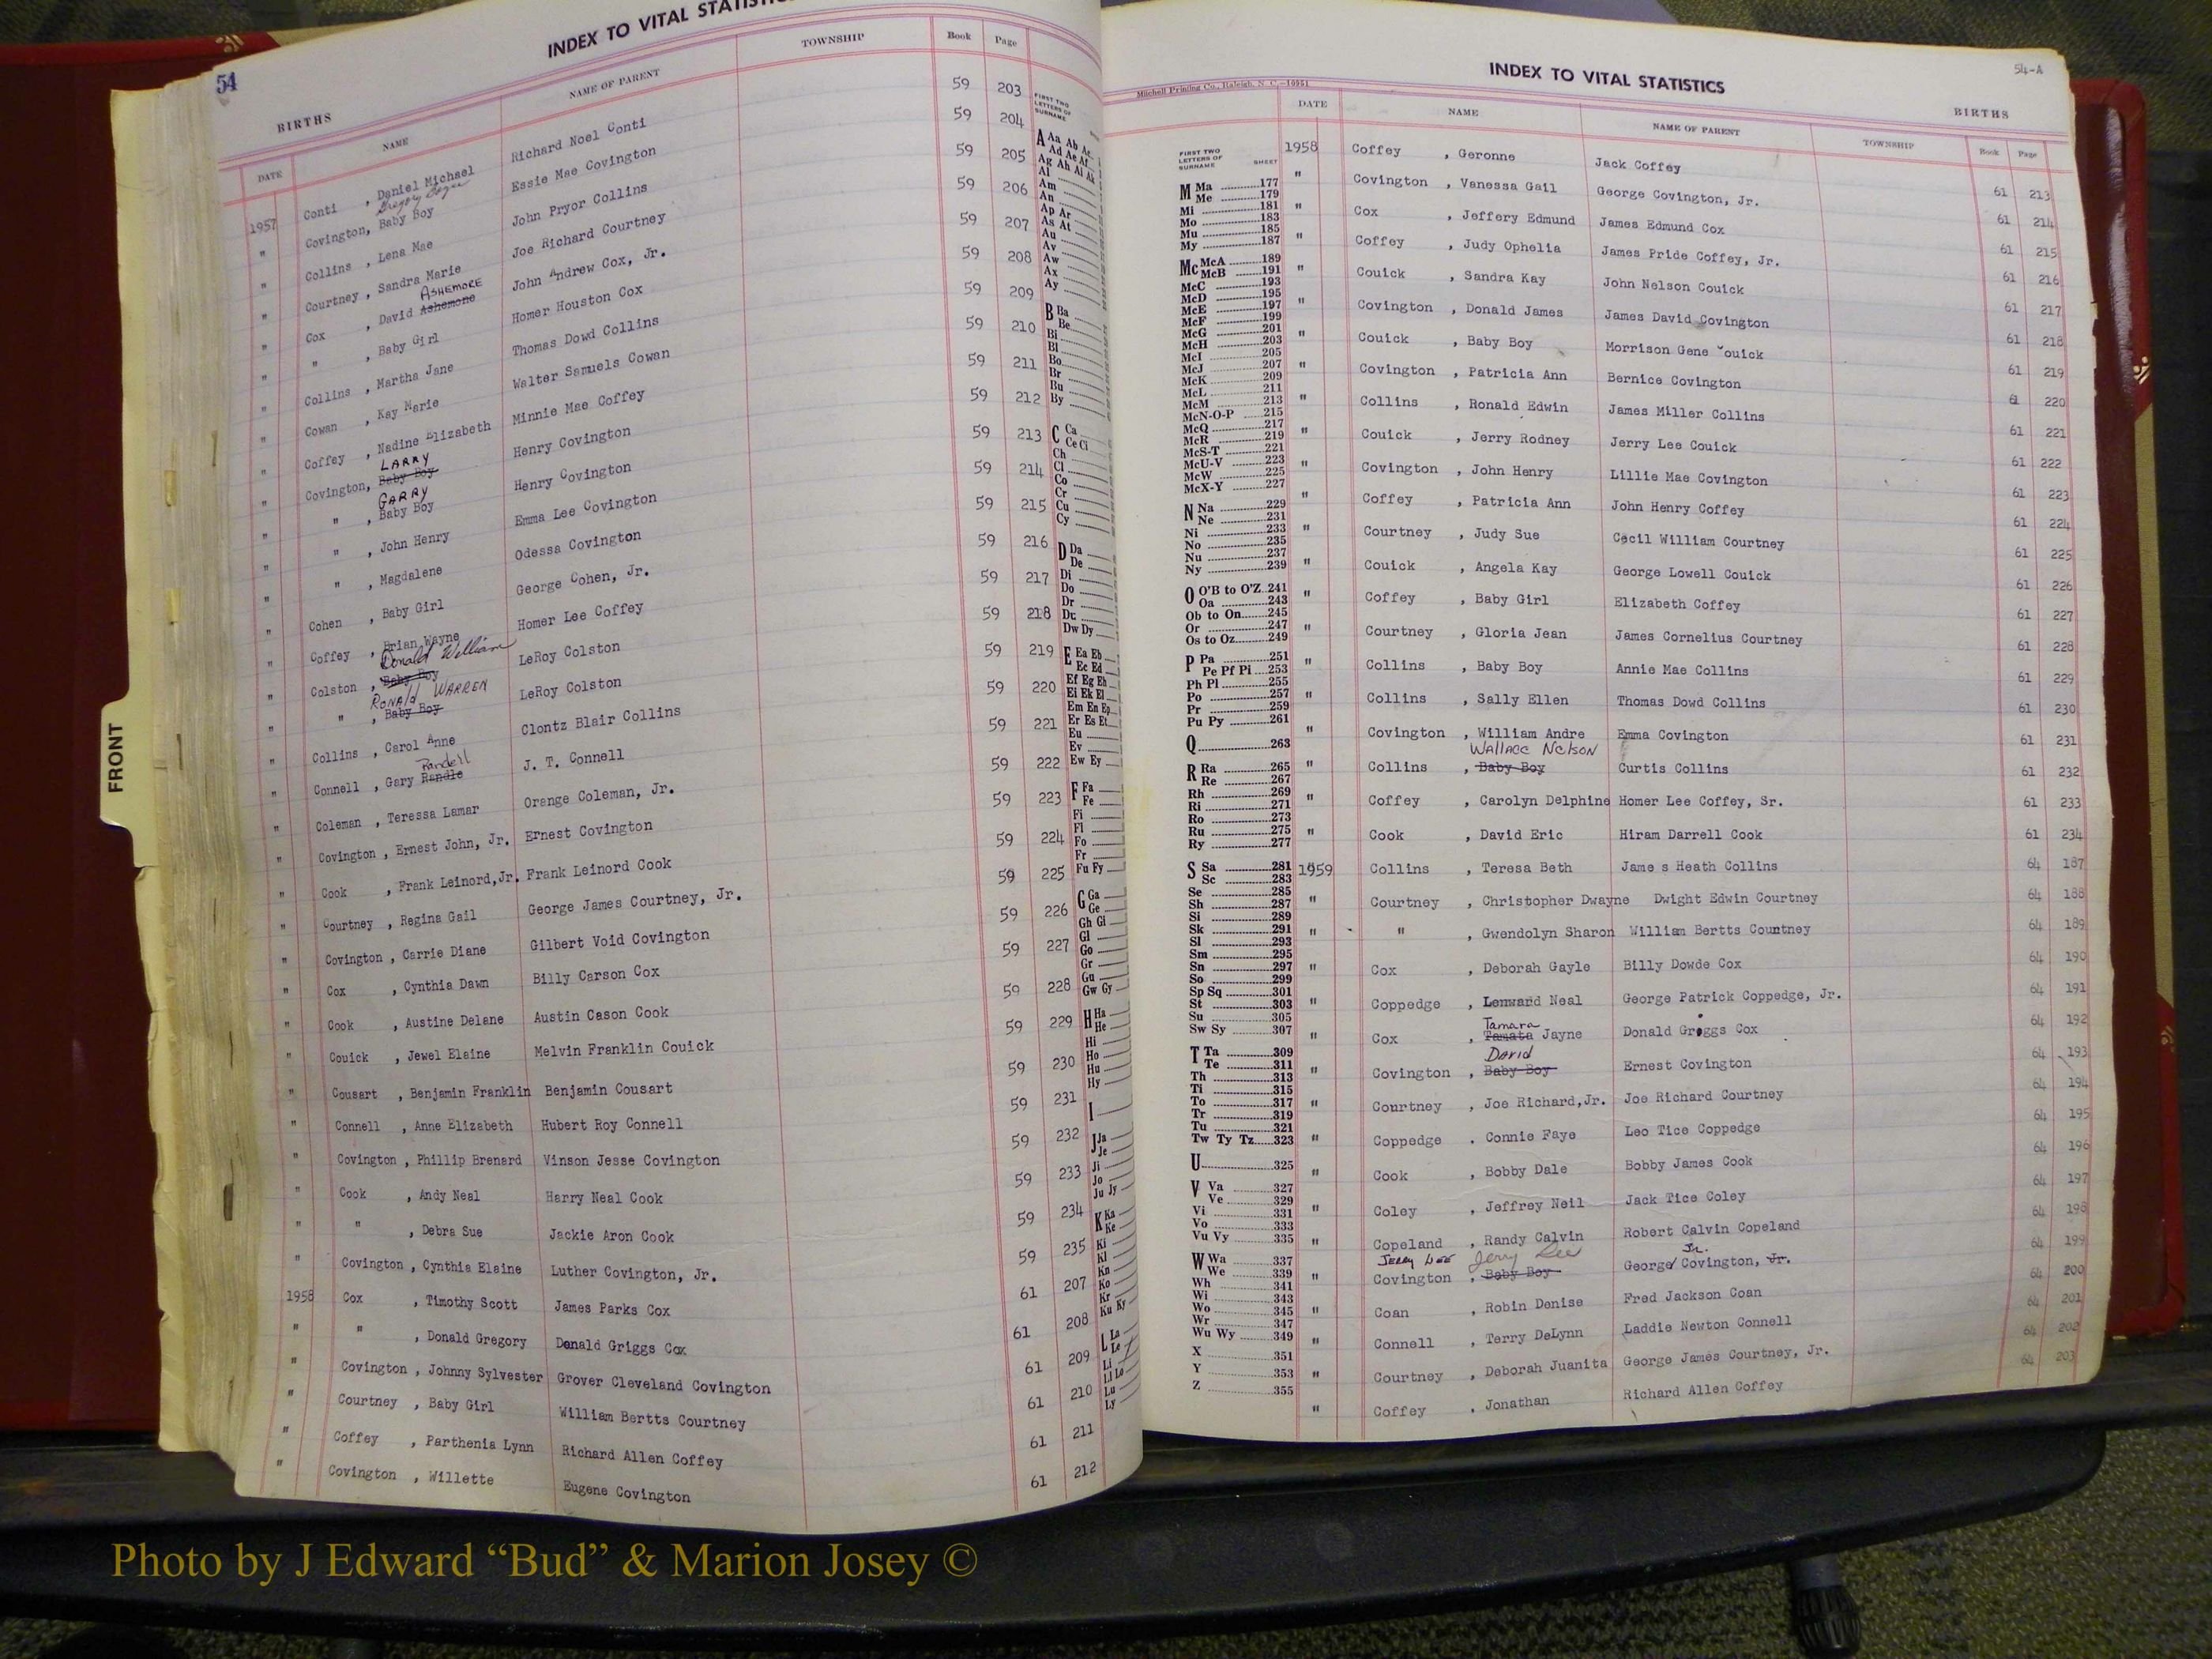 54
INDEX TO VITAL STATISTICS
BIRTHS
DATE NAME NAME OF PARENT TOWNSHIP Book Page
1957 Conti , Daniel Michael Richard Noel Conti 59 203
" Covington, Gregory Baby Boy Essie Mae Covington 59 204
" Collins , Lena Mae John Pryor Collins 59 205
" Courtney , Sandra Marie Joe Richard Courtney 59 206
" Cox , David Ashemone ASHEMORE John Andrew Cox, Jr. 59 207
" " , Baby Girl Homer Houston Cox 59 208
" Collins , Martha Jane Thomas Dowd Collins 59 209
" Cowan , Kay Marie Walter Samuels Cowan 59 210
" Coffey , Nadine Elizabeth Minnie Mae Coffey 59 211
" Covington, Baby Boy LARRY Henry Covington 59 212
" " , Baby Boy GARRY Henry Covington 59 213
" " , John Henry Emma Lee Covington 59 214
" " , Magdalene Odessa Covington 59 215
" Cohen , Baby Girl George Cohen, Jr. 59 216
" Coffey , Brian Wayne Homer Lee Coffey 59 217
" Colston , Baby Boy Donald William LeRoy Colston 59 218
" " , Baby Boy RONALD WARREN LeRoy Colston 59 219
" Collins , Carol Anne Clontz Blair Collins 59 220
" Connell , Gary Randle Randell J. T. Connell 59 221
" Coleman , Teressa Lamar Orange Coleman, Jr. 59 222
" Covington , Ernest John, Jr. Ernest Covington 59 223
" Cook , Frank Leinord,Jr. Frank Leinord Cook 59 224
" Courtney , Regina Gail George James Courtney, Jr. 59 225
" Covington , Carrie Diane Gilbert Void Covington 59 226
" Cox , Cynthia Dawn Billy Carson Cox 59 227
" Cook , Austine Delane Austin Cason Cook 59 228
" Couick , Jewel Elaine Melvin Franklin Couick 59 229
" Cousart , Benjamin Franklin Benjamin Cousart 59 230
" Connell , Anne Elizabeth Hubert Roy Connell 59 231
" Covington , Phillip Brenard Vinson Jesse Covington 59 232
" Cook , Andy Neal Harry Neal Cook 59 233
" " , Debra Sue Jackie Aron Cook 59 234
" Covington , Cynthia Elaine Luther Covington, Jr. 59 235
1958 Cox , Timothy Scott James Parks Cox 61 207
" " , Donald Gregory Donald Griggs Cox 61 208
" Covington , Johnny Sylvester Grover Cleveland Covington 61 209
" Courtney , Baby Girl William Bertts Courtney 61 210
" Coffey , Parthenia Lynn Richard Allen Coffey 61 211
" Covington , Willette Eugene Covington 61 212
FIRST TWO
LETTERS OF
SURNAME
A Aa Ab Ac
Ad Ae Af
Ag Ah Ai Ak
Al
Am
An
Ap Ar
As At
Au
Av
Aw
Ax
Ay
B Ba
Be
Bi
Bl
Bo
Br
Bu
By
C Ca
Ce Ci
Ch
Cl
Co
Cr
Cu
Cy
D Da
De
Di
Do
Dr
Du
Dw Dy
E Ea Eb
Ec Ed
Ef Eg Eh
Ei Ek El
Em En Ep
Er Es Et
Eu
Ev
Ew Ey
F Fa
Fe
Fi
Fl
Fo
Fr
Fu Fy
G Ga
Ge
Gh Gi
Gl
Go
Gr
Gu
Gw Gy
H Ha
He
Hi
Ho
Hu
Hy
I
J Ja
Je
Ji
Jo
Ju Jy
K Ka
Ke
Ki
Kl
Kn
Ko
Kr
Ku Ky
L La
Le
Li
Ll Lo
Lu
Ly
FRONT
54-A
INDEX TO VITAL STATISTICS
Mitchell Printing Co., Raleigh, N. C.—10951
BIRTHS
DATE NAME NAME OF PARENT TOWNSHIP Book Page
FIRST TWO
LETTERS OF
SURNAME SHEET
M Ma 177
Me 179
Mi 181
Mo 183
Mu 185
My 187
Mc McA 189
McB 191
McC 193
McD 195
McE 197
McF 199
McG 201
McH 203
McI 205
McJ 207
McK 209
McL 211
McM 213
McN-O-P 215
McQ 217
McR 219
McS-T 221
McU-V 223
McW 225
McX-Y 227
N Na 229
Ne 231
Ni 233
No 235
Nu 237
Ny 239
O O'B to O'Z 241
Oa 243
Ob to On 245
Or 247
Os to Oz 249
P Pa 251
Pe Pf Pi 253
Ph Pl 255
Po 257
Pr 259
Pu Py 261
Q 263
R Ra 265
Re 267
Rh 269
Ri 271
Ro 273
Ru 275
Ry 277
S Sa 281
Sc 283
Se 285
Sh 287
Si 289
Sk 291
Sl 293
Sm 295
Sn 297
So 299
Sp Sq 301
St 303
Su 305
Sw Sy 307
T Ta 309
Te 311
Th 313
Ti 315
To 317
Tr 319
Tu 321
Tw Ty Tz 323
U 325
V Va 327
Ve 329
Vi 331
Vo 333
Vu Vy 335
W Wa 337
We 339
Wh 341
Wi 343
Wo 345
Wr 347
Wu Wy 349
X 351
Y 353
Z 355
1958 Coffey , Geronne Jack Coffey 61 213
" Covington , Vanessa Gail George Covington, Jr. 61 214
" Cox , Jeffery Edmund James Edmund Cox 61 215
" Coffey , Judy Ophelia James Pride Coffey, Jr. 61 216
" Couick , Sandra Kay John Nelson Couick 61 217
" Covington , Donald James James David Covington 61 218
" Couick , Baby Boy Morrison Gene Couick 61 219
" Covington , Patricia Ann Bernice Covington 61 220
" Collins , Ronald Edwin James Miller Collins 61 221
" Couick , Jerry Rodney Jerry Lee Couick 61 222
" Covington , John Henry Lillie Mae Covington 61 223
" Coffey , Patricia Ann John Henry Coffey 61 224
" Courtney , Judy Sue Cecil William Courtney 61 225
" Couick , Angela Kay George Lowell Couick 61 226
" Coffey , Baby Girl Elizabeth Coffey 61 227
" Courtney , Gloria Jean James Cornelius Courtney 61 228
" Collins , Baby Boy Annie Mae Collins 61 229
" Collins , Sally Ellen Thomas Dowd Collins 61 230
" Covington , William Andre Emma Covington 61 231
" Collins , Baby Boy Wallace Nelson Curtis Collins 61 232
" Coffey , Carolyn Delphine Homer Lee Coffey, Sr. 61 233
" Cook , David Eric Hiram Darrell Cook 61 234
1959 Collins , Teresa Beth Jame s Heath Collins 64 187
" Courtney , Christopher Dwayne Dwight Edwin Courtney 64 188
" " , Gwendolyn Sharon William Bertts Courtney 64 189
" Cox , Deborah Gayle Billy Dowde Cox 64 190
" Coppedge , Lenward Neal George Patrick Coppedge, Jr. 64 191
" Cox , Tamata Tamara Jayne Donald Griggs Cox 64 192
" Covington , Baby Boy David Ernest Covington 64 193
" Courtney , Joe Richard,Jr. Joe Richard Courtney 64 194
" Coppedge . Connie Faye Leo Tice Coppedge 64 195
" Cook , Bobby Dale Bobby James Cook 64 196
" Coley , Jeffrey Neil Jack Tice Coley 64 197
" Copeland , Randy Calvin Robert Calvin Copeland 64 198
" Covington , Baby Boy JERRY LEE Jerry Lee George Jr. Covington, Jr. 64 199
" Coan , Robin Denise Fred Jackson Coan 64 200
" Connell , Terry DeLynn Laddie Newton Connell 64 201
" Courtney , Deborah Juanita George James Courtney, Jr. 64 202
" Coffey , Jonathan Richard Allen Coffey 64 203
Photo by J Edward “Bud” & Marion Josey ©